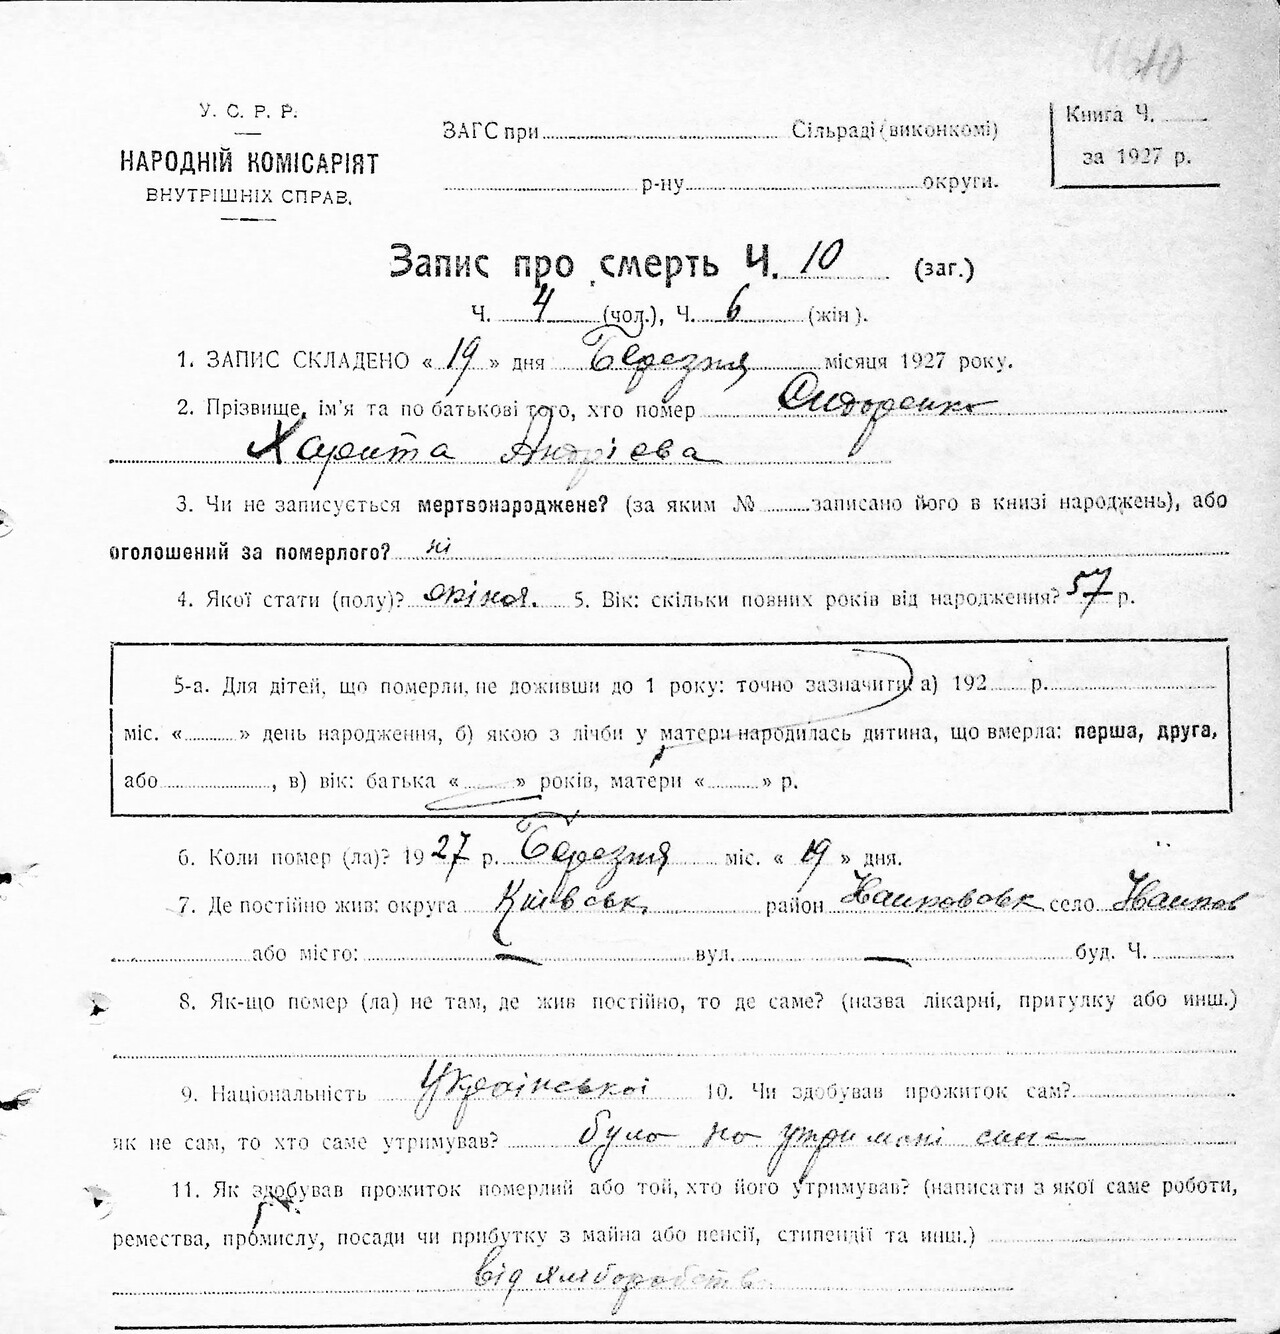 У. С. Р. Р.
НАРОДНІЙ КОМІСАРІЯТ
ВНУТРІШНІХ СПРАВ.
ЗАГС при Сільраді (виконкомі)
р-ну округи.
Книга Ч.
за 1927 р.
Запис про смерть Ч. 10 (заг.)
Ч. 4 (чол.), Ч. 6 (жін).
1. ЗАПИС СКЛАДЕНО « 19 » дня Березня місяця 1927 року.
2. Прізвище, ім'я та по батькові того, хто помер Сидоренко
Харита Андрієва
3. Чи не записується мертвонароджене? (за яким № записано його в книзі народжень), або
оголошений за померлого? ні
4. Якої стати (полу)? жіноч. 5. Вік: скільки повних років від народження? 57 р.
5-а. Для дітей, що померли, не доживши до 1 року: точно зазначити а) 192 р.
міс. « » день народження, б) якою з лічби у матери народилась дитина, що вмерла: перша, друга,
або , в) вік: батька « » років, матери « » р.
6. Коли помер (ла)? 1927 р. Березня міс. « 19 » дня.
7. Де постійно жив: округа Київськ. район село
або місто: — вул. — буд. Ч.
8. Як-що помер (ла) не там, де жив постійно, то де саме? (назва лікарні, притулку або инш.)
9. Національність Української 10. Чи здобував прожиток сам?
як не сам, то хто саме утримував? було на утримані сина
11. Як здобував прожиток померлий або той, хто його утримував? (написати з якої саме роботи,
ремества, промислу, посади чи прибутку з майна або пенсії, стипендії та инш.)
від хліборобства